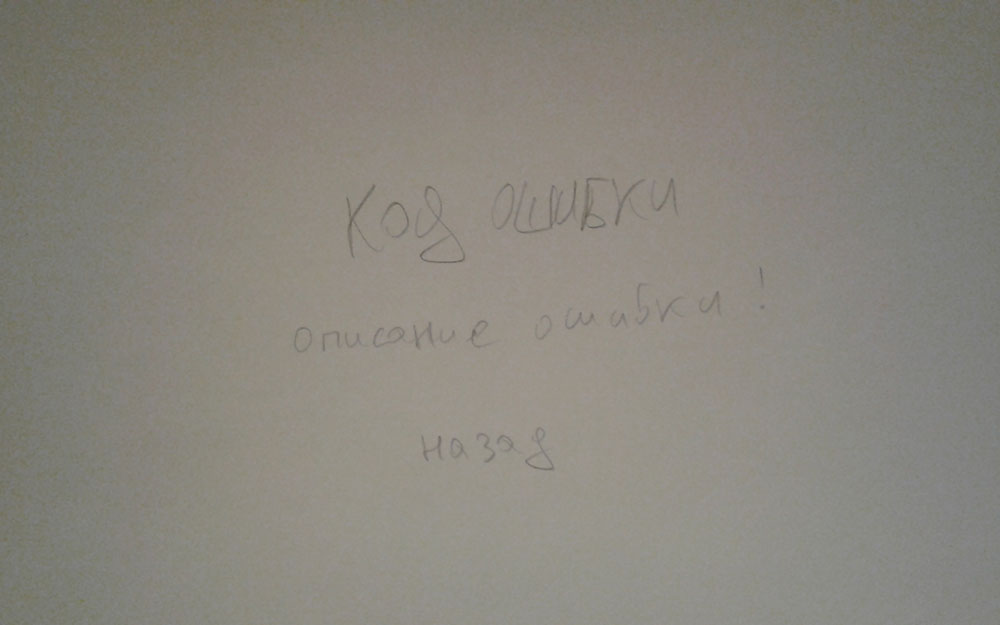 Код ошибки
описание ошибки!
назад